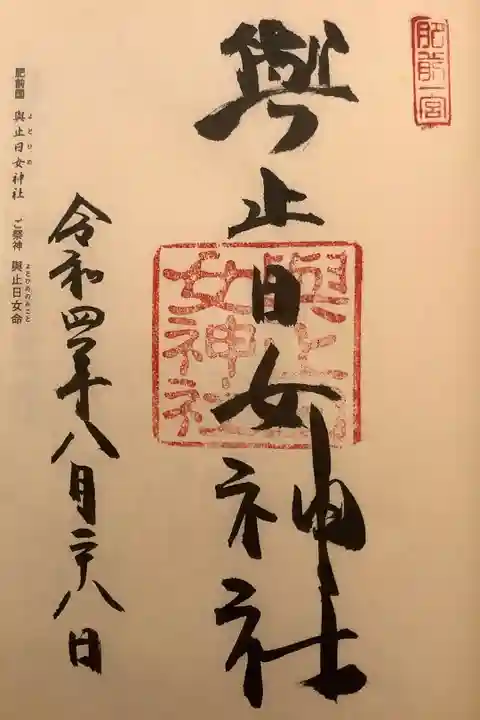 肥前一宮
與止日女神社
與止日女神社
令和四年八月二十八日
肥前国 與止日女神社 ご祭神 與止日女命
よとひめ
よとひめのみこと